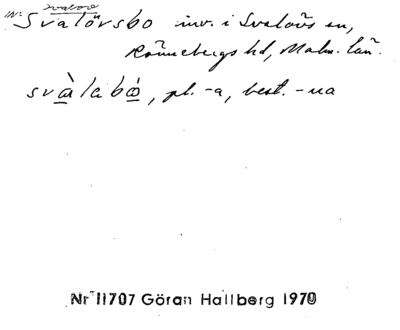 Svalöv
IN: Svalövsbo inv. i Svalövs sn,
Rönnebergs hd, Malm. län.
svàlabó, pl. -a, best. -na
Nr 11707 Göran Hallberg 1970